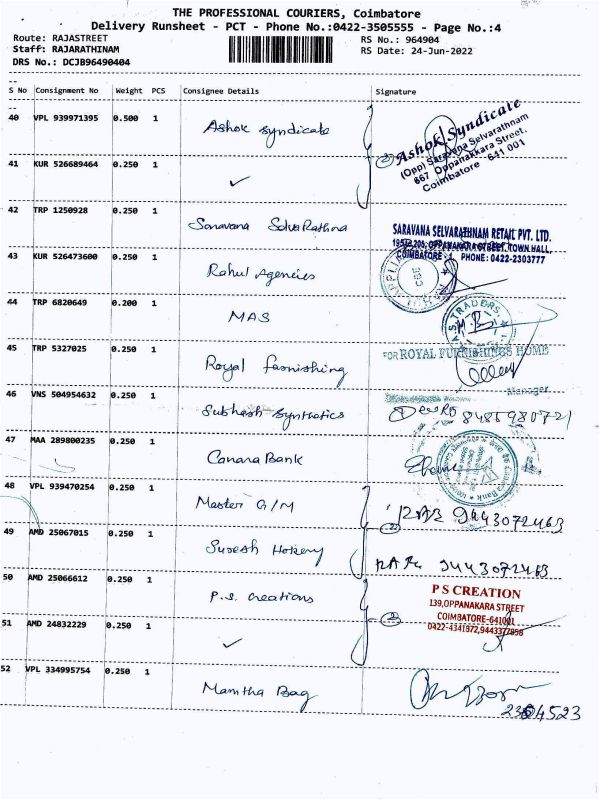 THE PROFESSIONAL COURIERS, Coimbatore
Delivery Runsheet - PCT - Phone No.:0422-3505555 - Page No.:4
Route: RAJASTREET
RS No.: 964904
Staff: RAJARATHINAM
RS Date: 24-Jun-2022
DRS No.: DCJB96490404
S No Consignment No Weight PCS Consignee Details Signature
40 VPL 939971395 0.500 1 Ashok Syndicate
Ashok Syndicate
(Opp) Saravana Selvarathnam
667 Oppanakkara Street,
Coimbatore 641 001
41 KUR 526689464 0.250 1 ✓
42 TRP 1250928 0.250 1 Saravana SelvaRathna
SARAVANA SELVARATHNAM RETAIL PVT. LTD.
COIMBATORE - 1, PHONE: 0422-2303777
43 KUR 526473600 0.250 1 Rahul Agencies
44 TRP 6820649 0.200 1 MAS
45 TRP 5327025 0.250 1 Royal farnishing
FOR ROYAL FURNISHINGS HOME
Manager
46 VNS 504954632 0.250 1 Subhash Synthetics
8485980721
47 MAA 289800235 0.250 1 Canara Bank
48 VPL 939470254 0.250 1 Master G/M
9443072463
49 AMD 25067015 0.250 1 Suresh Hokery
9443072463
50 AMD 25066612 0.250 1 P.S. Creations
P S CREATION
139,OPPANAKARA STREET
COIMBATORE-641001
51 AMD 24832229 0.250 1 ✓
52 VPL 334995754 0.250 1 Mamtha Bag